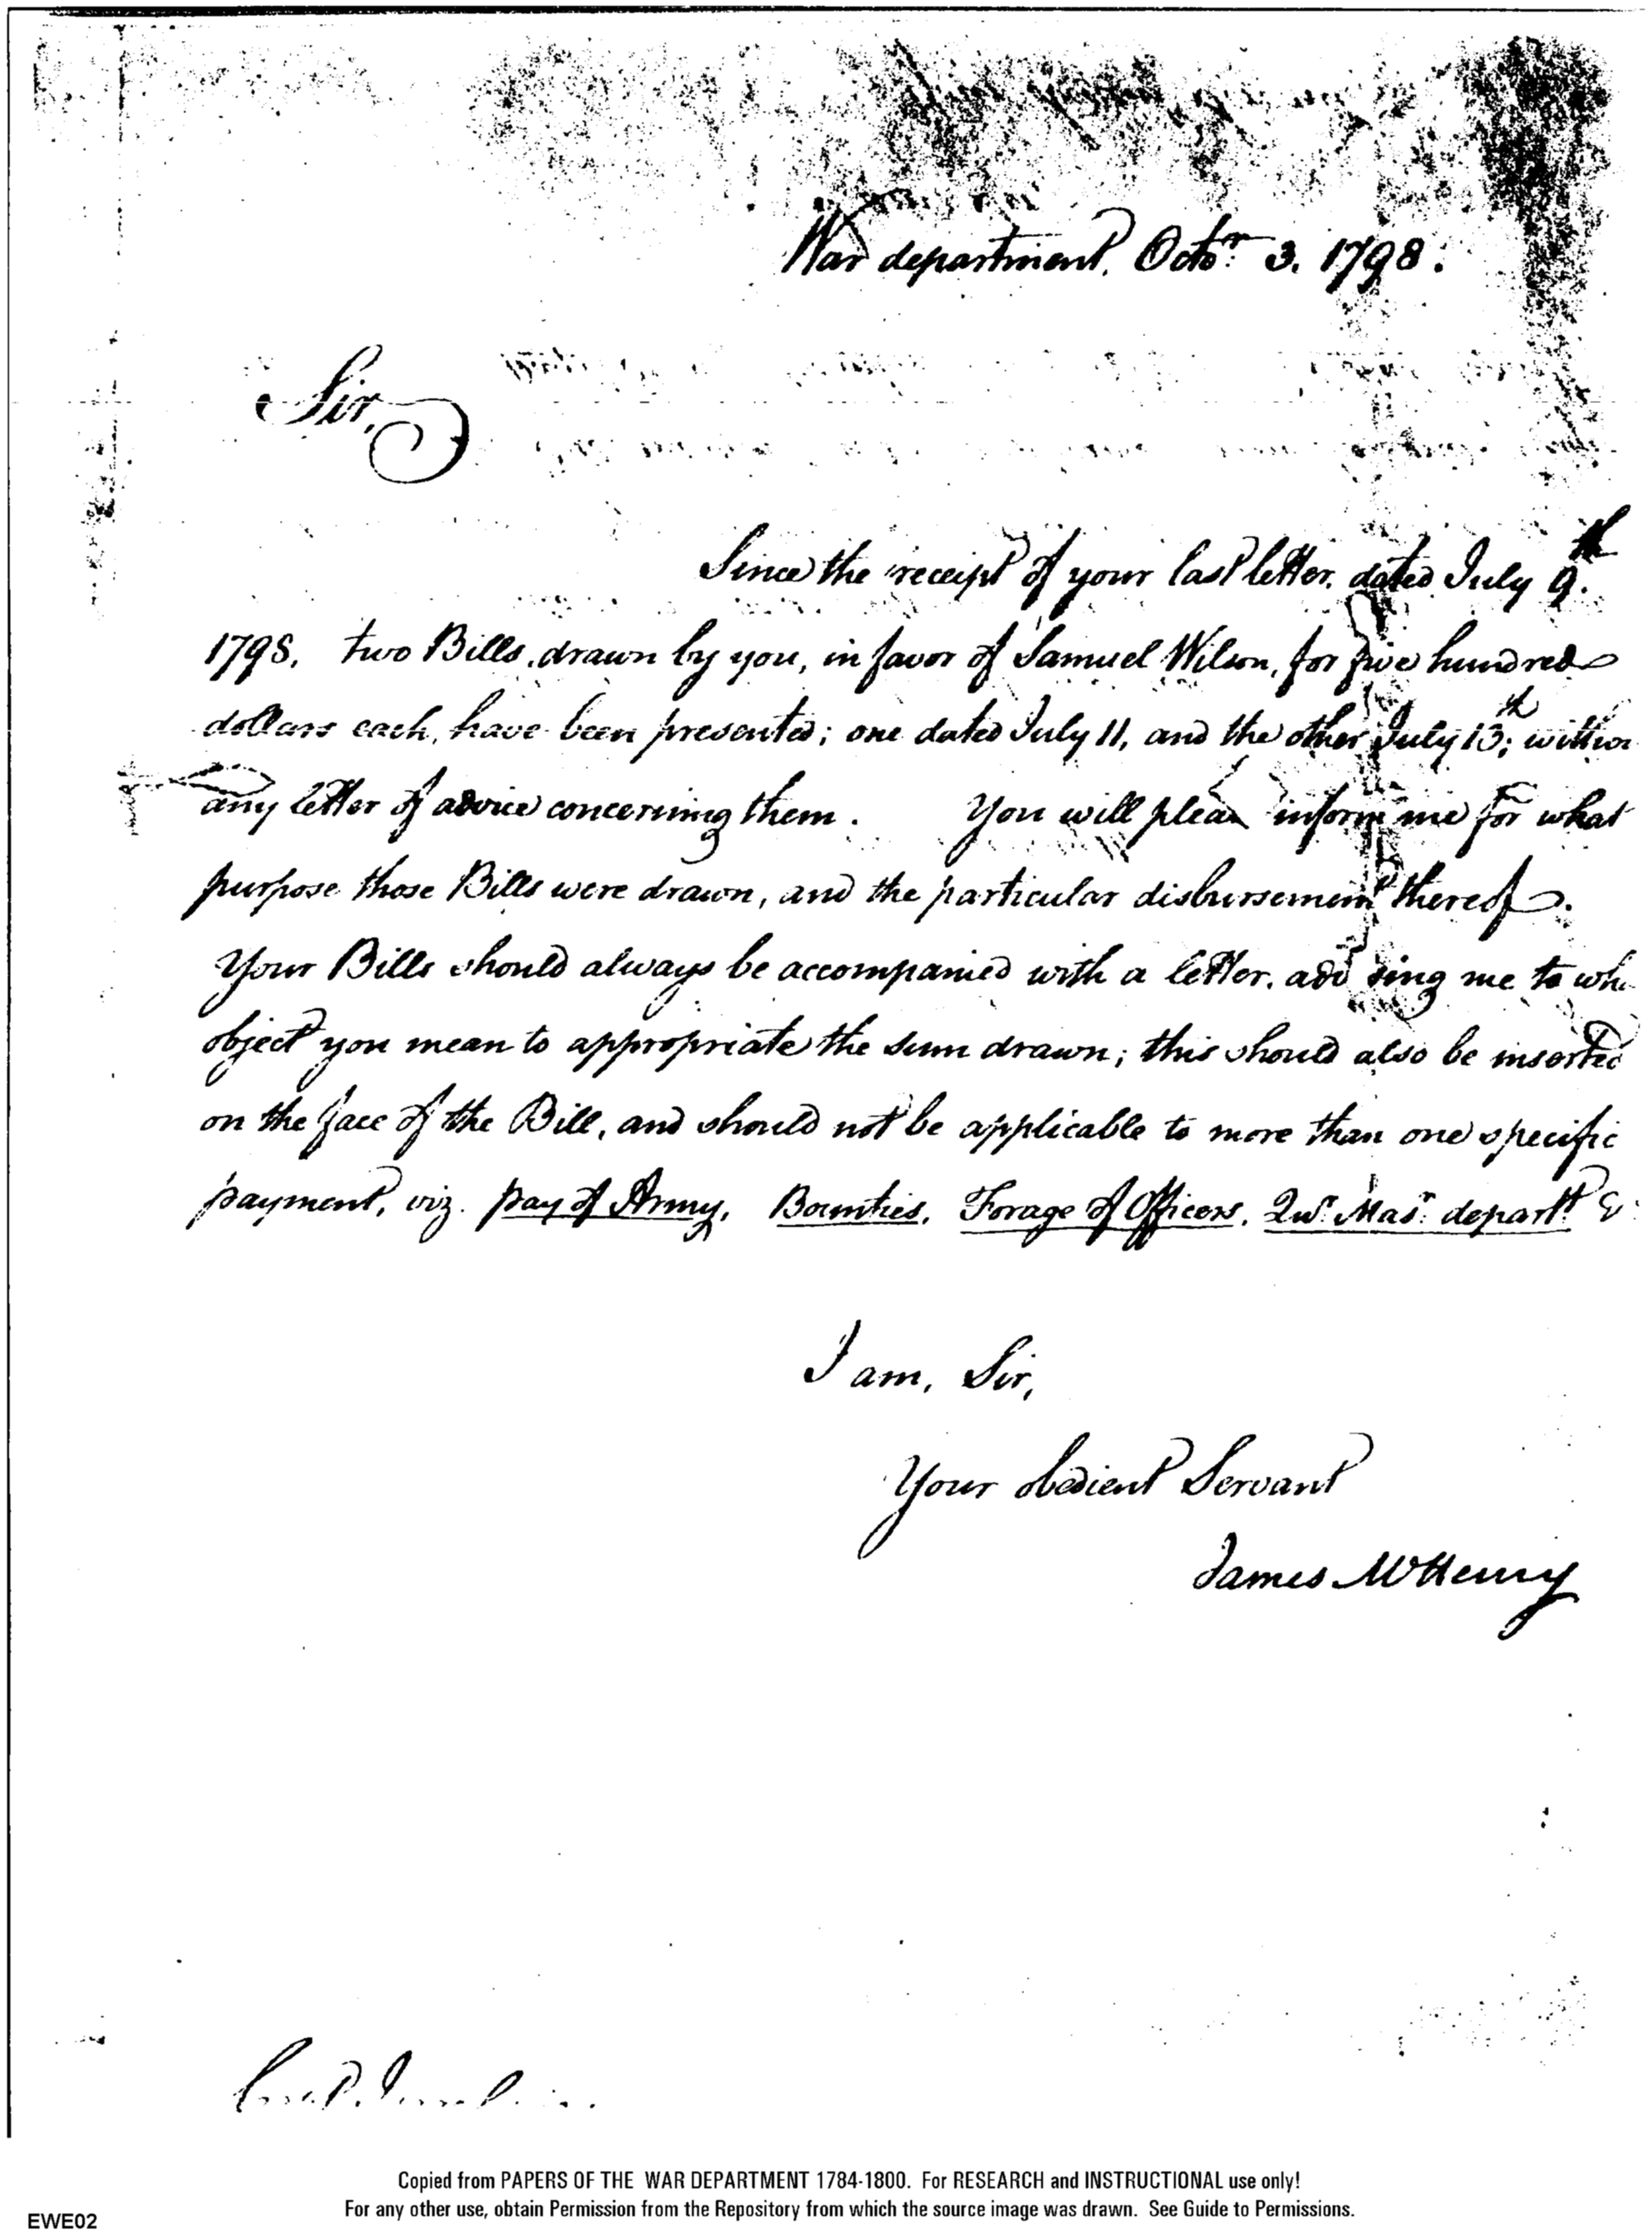 War department, Octo.r 3. 1798.
Sir,
Since the receipt of your last letter, dated July 9.th
1798, two Bills, drawn by you, in favor of Samuel Wilson, for five hundred
dollars each, have been presented; one dated July 11, and the other July 13th; withou
any letter of advice concerning them. You will please inform me for what
purpose those Bills were drawn, and the particular disbursement thereof.
Your Bills should always be accompanied with a letter, advising me to wh
object you mean to appropriate the sum drawn; this should also be inserted
on the face of the Bill, and should not be applicable to more than one specific
payment, viz. pay of Army, Bounties, Forage of Officers, Qur. Masr. departt. &
I am, Sir,
Your obedient Servant
James McHenry
Copied from PAPERS OF THE WAR DEPARTMENT 1784-1800. For RESEARCH and INSTRUCTIONAL use only!
For any other use, obtain Permission from the Repository from which the source image was drawn. See Guide to Permissions.
EWE02